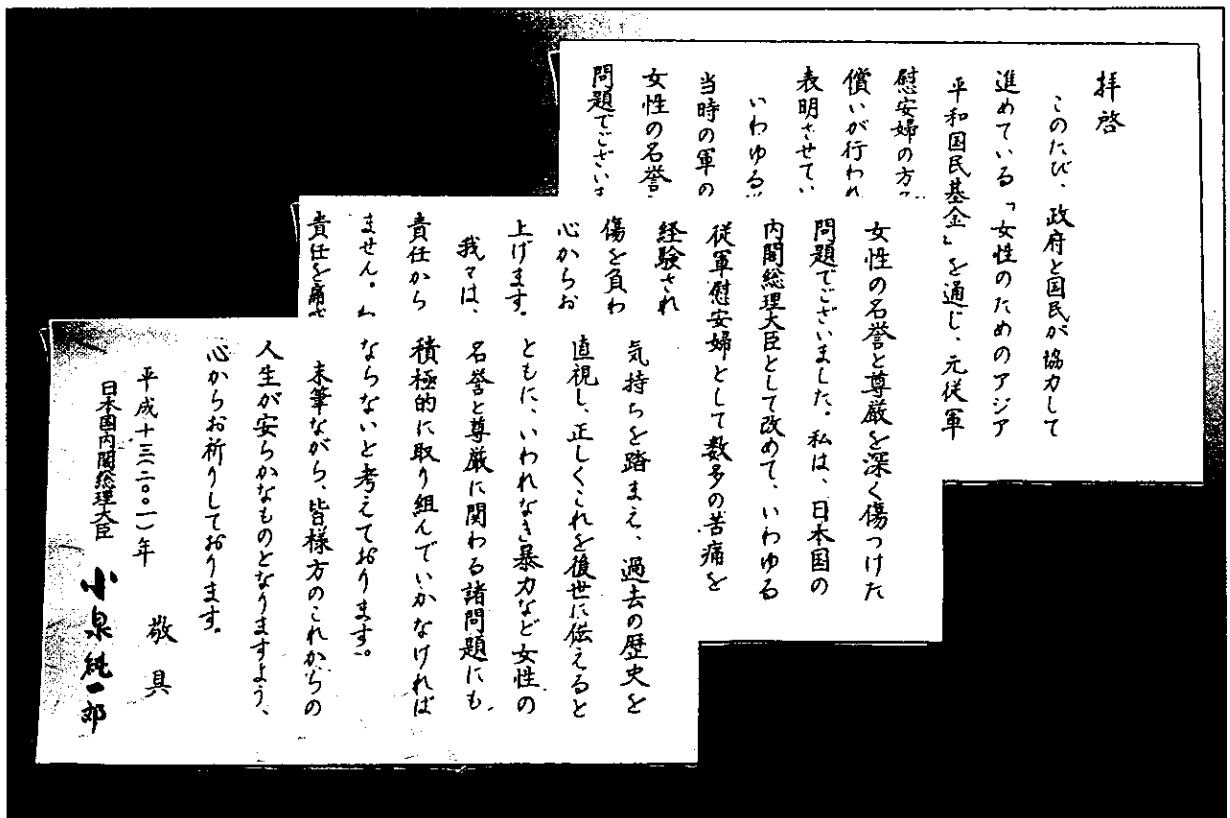 拝啓
このたび、政府と国民が協力して
進めている「女性のためのアジア
平和国民基金」を通じ、元従軍
慰安婦の方
償いが行われ
表明させてい
いわゆる
当時の軍の
女性の名誉
問題でございま
女性の名誉と尊厳を深く傷つけた
問題でございました。私は、日本国の
内閣総理大臣として改めて、いわゆる
従軍慰安婦として数多の苦痛を
経験され
傷を負わ
心からお
上げます。
我々は、
責任から
ません。わ
責任を痛
気持ちを踏まえ、過去の歴史を
直視し、正しくこれを後世に伝えると
ともに、いわれなき暴力など女性の
名誉と尊厳に関わる諸問題にも
積極的に取り組んでいかなければ
ならないと考えております。
末筆ながら、皆様方のこれからの
人生が安らかなものとなりますよう、
心からお祈りしております。
敬具
平成十三(二〇〇一)年
日本国内閣総理大臣 小泉純一郎